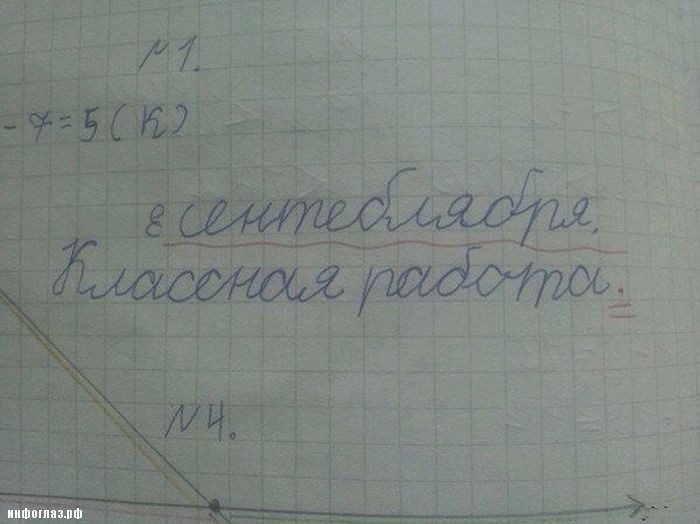 N1.
-7=5(К)
8 сентеблября.
Классная работа.
N4.
инфоглаз.рф